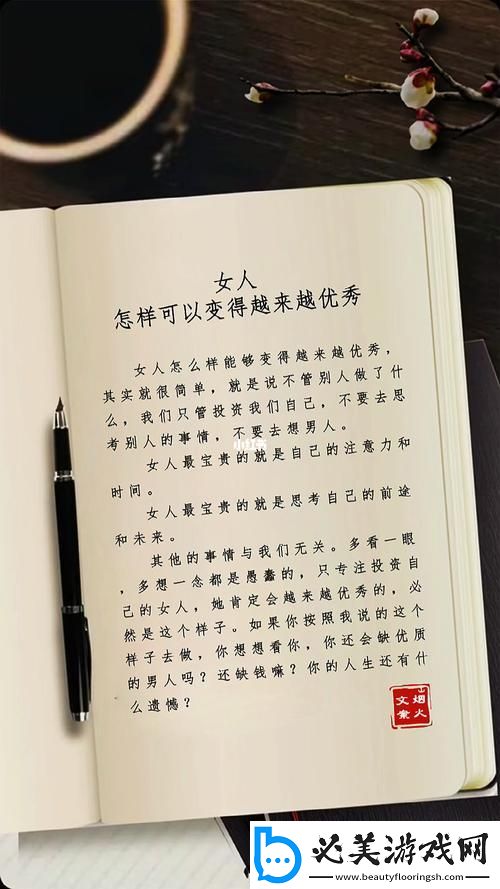 女人
怎样可以变得越来越优秀
女人怎么样能够变得越来越优秀，
其实就很简单，就是说不管别人做了什
么，我们只管投资我们自己，不要去思
考别人的事情，不要去想男人。
女人最宝贵的就是自己的注意力和
时间。
女人最宝贵的就是思考自己的前途
和未来。
其他的事情与我们无关。多看一眼
，多想一念都是愚蠢的，只专注投资自
己的女人，她肯定会越来越优秀的，必
然是这个样子。如果你按照我说的这个
样子去做，你想想看你，你还会缺优质
的男人吗？还缺钱嘛？你的人生还有什
么遗憾？
小红书
烟火
文案
必美游戏网
www.beautyflooringsh.com